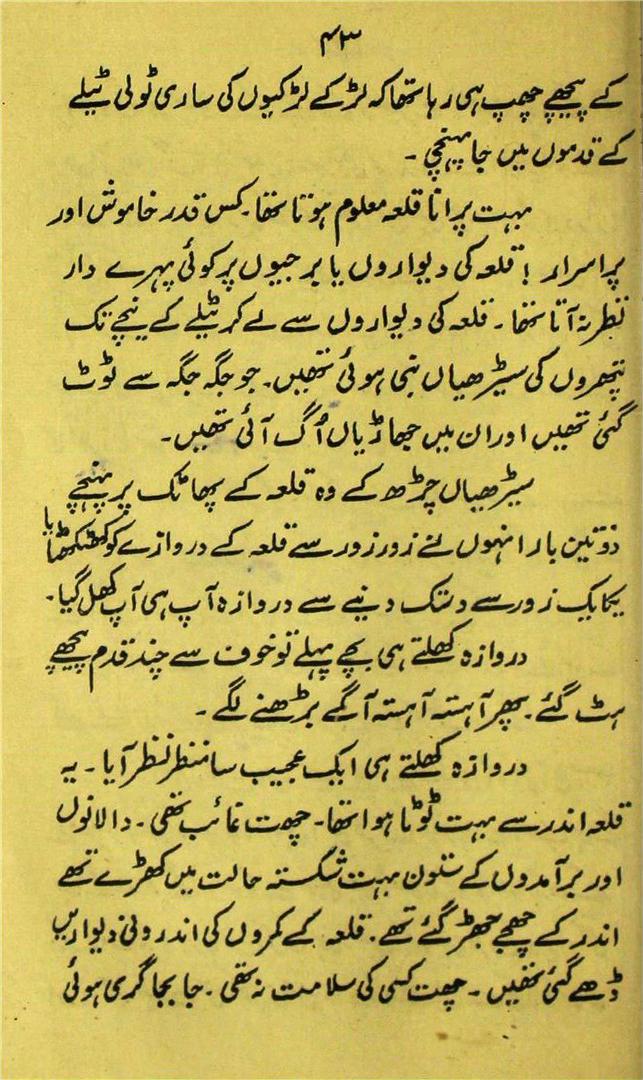 ۴۳
کے پیچھے چھپ ہی رہا تھا کہ لڑکے لڑکیوں کی ساری ٹولی ٹیلے
کے قدموں میں جا پہنچی ۔
بہت پرانا قلعہ معلوم ہوتا تھا۔ کس قدر خاموش اور
پراسرار ! قلعہ کی دیواروں یا برجیوں پر کوئی پہرے دار
نظر نہ آتا تھا ۔ قلعہ کی دیواروں سے لے کر ٹیلے کے نیچے تک
پتھروں کی سیڑھیاں بنی ہوئی تھیں۔ جو جگہ جگہ سے ٹوٹ
گئی تھیں اور ان میں جھاڑیاں اُگ آئی تھیں۔
سیڑھیاں چڑھ کے وہ قلعہ کے پھاٹک پر پہنچے
دو تین بار انہوں نے زور زور سے قلعہ کے دروازے کو کھٹکھٹایا
یکایک زور سے دستک دینے سے دروازہ آپ ہی آپ کھل گیا۔
دروازہ کھلتے ہی بچے پہلے تو خوف سے چند قدم پیچھے
ہٹ گئے۔ پھر آہستہ آہستہ آگے بڑھنے لگے ۔
دروازہ کھلتے ہی ایک عجیب سا منظر نظر آیا ۔ یہ
قلعہ اندر سے بہت ٹوٹا ہوا تھا۔ چھت غائب تھی ۔ دالانوں
اور برآمدوں کے ستون بہت شکستہ حالت میں کھڑے تھے
اندر کے چھجے جھڑ گئے تھے ۔ قلعہ کے کمروں کی اندرونی دیواریں
ڈھے گئی تھیں ۔ چھت کسی کی سلامت نہ تھی ۔ جا بجا گری ہوئی